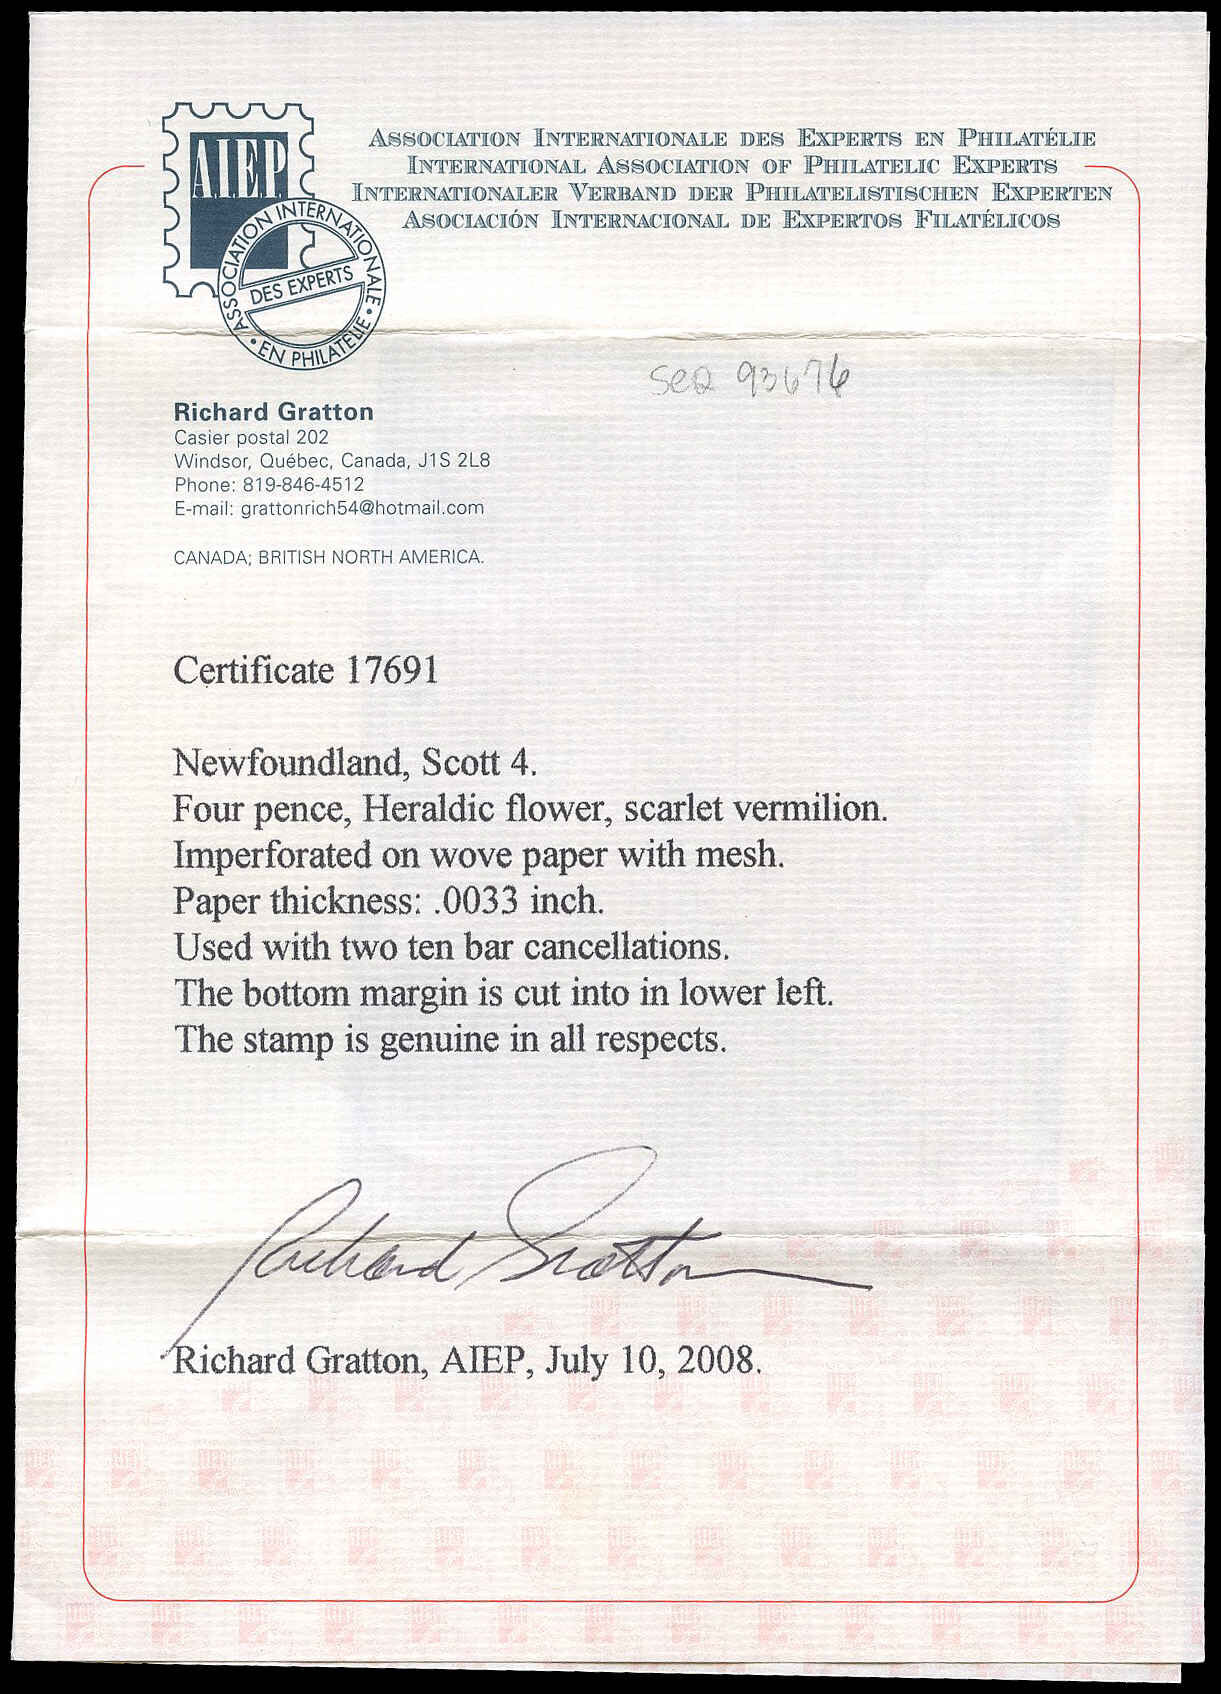 AIEP
ASSOCIATION INTERNATIONALE
DES EXPERTS
• EN PHILATÉLIE •
ASSOCIATION INTERNATIONALE DES EXPERTS EN PHILATÉLIE
INTERNATIONAL ASSOCIATION OF PHILATELIC EXPERTS
INTERNATIONALER VERBAND DER PHILATELISTISCHEN EXPERTEN
ASOCIACIÓN INTERNACIONAL DE EXPERTOS FILATÉLICOS
93676
Richard Gratton
Casier postal 202
Windsor, Québec, Canada, J1S 2L8
Phone: 819-846-4512
E-mail: grattonrich54@hotmail.com
CANADA; BRITISH NORTH AMERICA.
Certificate 17691
Newfoundland, Scott 4.
Four pence, Heraldic flower, scarlet vermilion.
Imperforated on wove paper with mesh.
Paper thickness: .0033 inch.
Used with two ten bar cancellations.
The bottom margin is cut into in lower left.
The stamp is genuine in all respects.
Richard Gratton
Richard Gratton, AIEP, July 10, 2008.